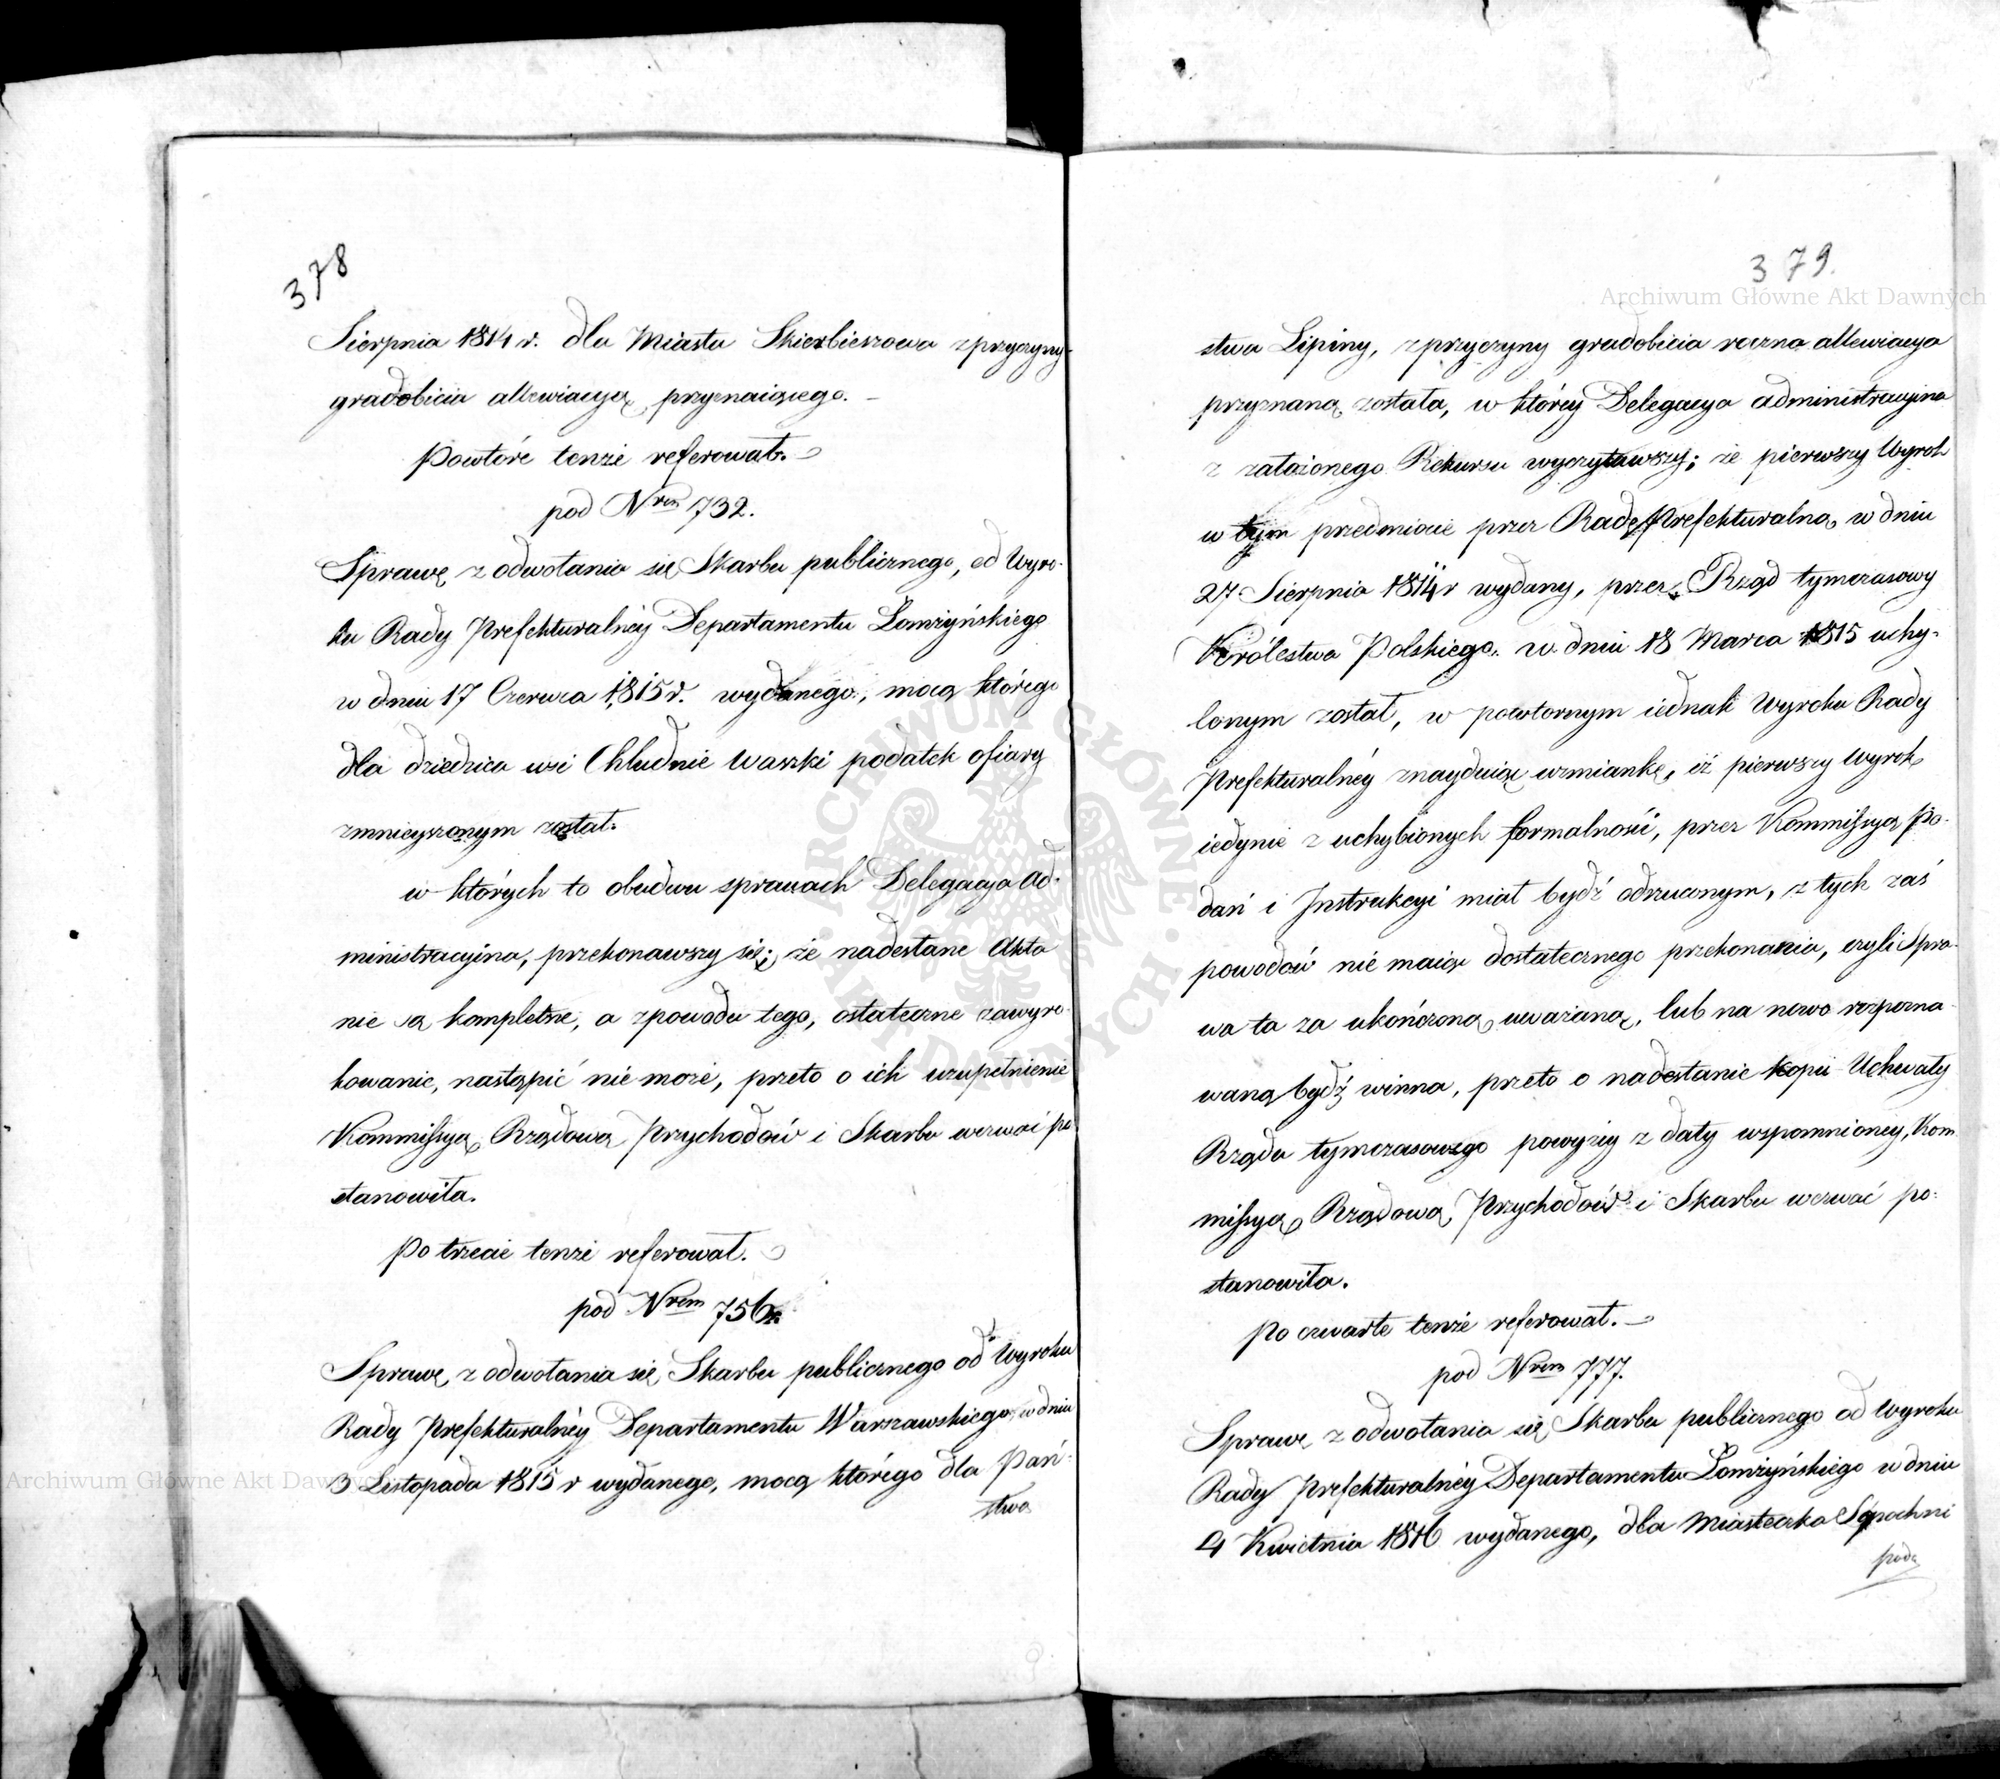 378
Sierpnia 1814 r. dla Miasta Skierbieszowa z przyczyny
gradobicia allewiacyą przynaiącego. –
Powtóre tenże referował.
pod Nrem 732.
Sprawę z odwołania się Skarbu publicznego, od Wyro-
ku Rady Prefekturalnéy Departamentu Łomżyńskiego
w dniu 17 Czerwca 1815 r. wydanego, mocą którego
dla dziedzica wsi Chludnie Waszki podatek ofiary
zmnieyszonym został.
w których to obudwu sprawach Delegacya Ad-
ministracyina, przekonawszy się; że nadesłane Akta
nie są kompletne, a z powodu tego, ostateczne zawyro-
kowanie, nastąpić nie może, przeto o ich uzupełnienie
Kommissyą Rządową Przychodów i Skarbu wezwać po
stanowiła.
Po trzecie tenże referował.
pod Nrem 756.
Sprawę z odwołania się Skarbu publicznego od Wyroku
Rady Prefekturalnéy Departamentu Warszawskiego w dniu
3 Listopada 1815 r wydanego, mocą którego dla Pań-
stwa
379.
stwa Lipiny, z przyczyny gradobicia roczna allewiacya
przyznaną została, w któréy Delegacya administracyina
z założonego Rekursu wyczytawszy; że pierwszy Wyrok
w tym przedmiocie przez Radę Prefekturalną w dniu
27 Sierpnia 1814 r wydany, przez Rząd tymczasowy
Królestwa Polskiego w dniu 18 Marca 1815 uchy-
lonym został, w powtornym iednak Wyroku Rady
Prefekturalnéy znayduiąc wzmiankę, iż pierwszy Wyrok
iedynie z uchybionych formalności, przez Kommissyą Po-
dań i Instrukcyi miał bydź odrzuconym, z tych zaś
powodów nie maiąc dostatecznego przekonania, czyli Spra-
wa ta za ukończoną uważaną, lub na nowo rozpozna-
waną bydź winna, przeto o nadesłanie kopii Uchwały
Rządu tymczasowego powyżey z daty wspomnioney, Kom
missyą Rządową Przychodów i Skarbu wezwać po-
stanowiła.
Po czwarte tenże referował. –
pod Nrem 777.
Sprawę z odwołania się Skarbu publicznego od Wyroku
Rady Prefekturalnéy Departamentu Łomżyńskiego w dniu
4 Kwietnia 1816 wydanego, dla Miasteczka
Archiwum Główne Akt Dawnych
Archiwum Główne Akt Dawnych
ARCHIWUM GŁÓWNE · AKT DAWNYCH ·